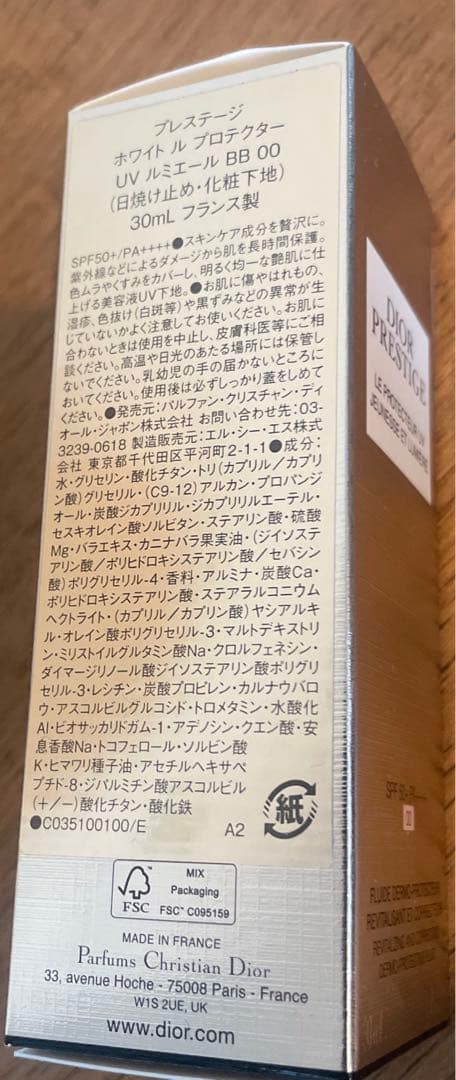 プレステージ
ホワイト ル プロテクター
UV ルミエール BB 00
(日焼け止め・化粧下地)
30mL フランス製
SPF50+/PA++++●スキンケア成分を贅沢に。
紫外線などによるダメージから肌を長時間保護。
色ムラやくすみをカバーし、明るく均一な艶肌に仕
上げる美容液UV下地。●お肌に傷やはれもの、
湿疹、色抜け(白斑等)や黒ずみなどの異常が生
じていないかよく注意してお使いください。お肌に
合わないときは使用を中止し、皮膚科医等にご相
談ください。高温や日光のあたる場所には保管し
ないでください。乳幼児の手の届かないところに
おいてください。使用後は必ずしっかり蓋をしめて
ください。●発売元:パルファン・クリスチャン・ディ
オール・ジャポン株式会社 お問い合わせ先:03-
3239-0618 製造販売元:エル・シー・エス株式
会社 東京都千代田区平河町2-1-1●成分:
水・グリセリン・酸化チタン・トリ(カプリル/カプリ
ン酸)グリセリル・(C9-12)アルカン・プロパンジ
オール・炭酸ジカプリリル・ジカプリリルエーテル・
セスキオレイン酸ソルビタン・ステアリン酸・硫酸
Mg・バラエキス・カニナバラ果実油・(ジイソステ
アリン酸/ポリヒドロキシステアリン酸/セバシン
酸)ポリグリセリル-4・香料・アルミナ・炭酸Ca・
ポリヒドロキシステアリン酸・ステアラルコニウム
ヘクトライト・(カプリル/カプリン酸)ヤシアルキ
ル・オレイン酸ポリグリセリル-3・マルトデキストリ
ン・ミリストイルグルタミン酸Na・クロルフェネシン・
ダイマージリノール酸ジイソステアリン酸ポリグリ
セリル-3・レシチン・炭酸プロピレン・カルナウバロ
ウ・アスコルビルグルコシド・トロメタミン・水酸化
Al・ビオサッカリドガム-1・アデノシン・クエン酸・安
息香酸Na・トコフェロール・ソルビン酸
K・ヒマワリ種子油・アセチルヘキサペ
プチド-8・ジパルミチン酸アスコルビル
(+/-)酸化チタン・酸化鉄
●C035100100/E A2
紙
FSC
MIX
Packaging
FSC™ C095159
MADE IN FRANCE
Parfums Christian Dior
33, avenue Hoche - 75008 Paris - France
W1S 2UE, UK
www.dior.com
DIOR
PRESTIGE
LE PROTECTEUR UV
JEUNESSE ET LUMIÈRE
SPF 50+
00
FLUIDE DERMO-PROTECTEUR
REVITALISANT ET
REVITALIZING AND